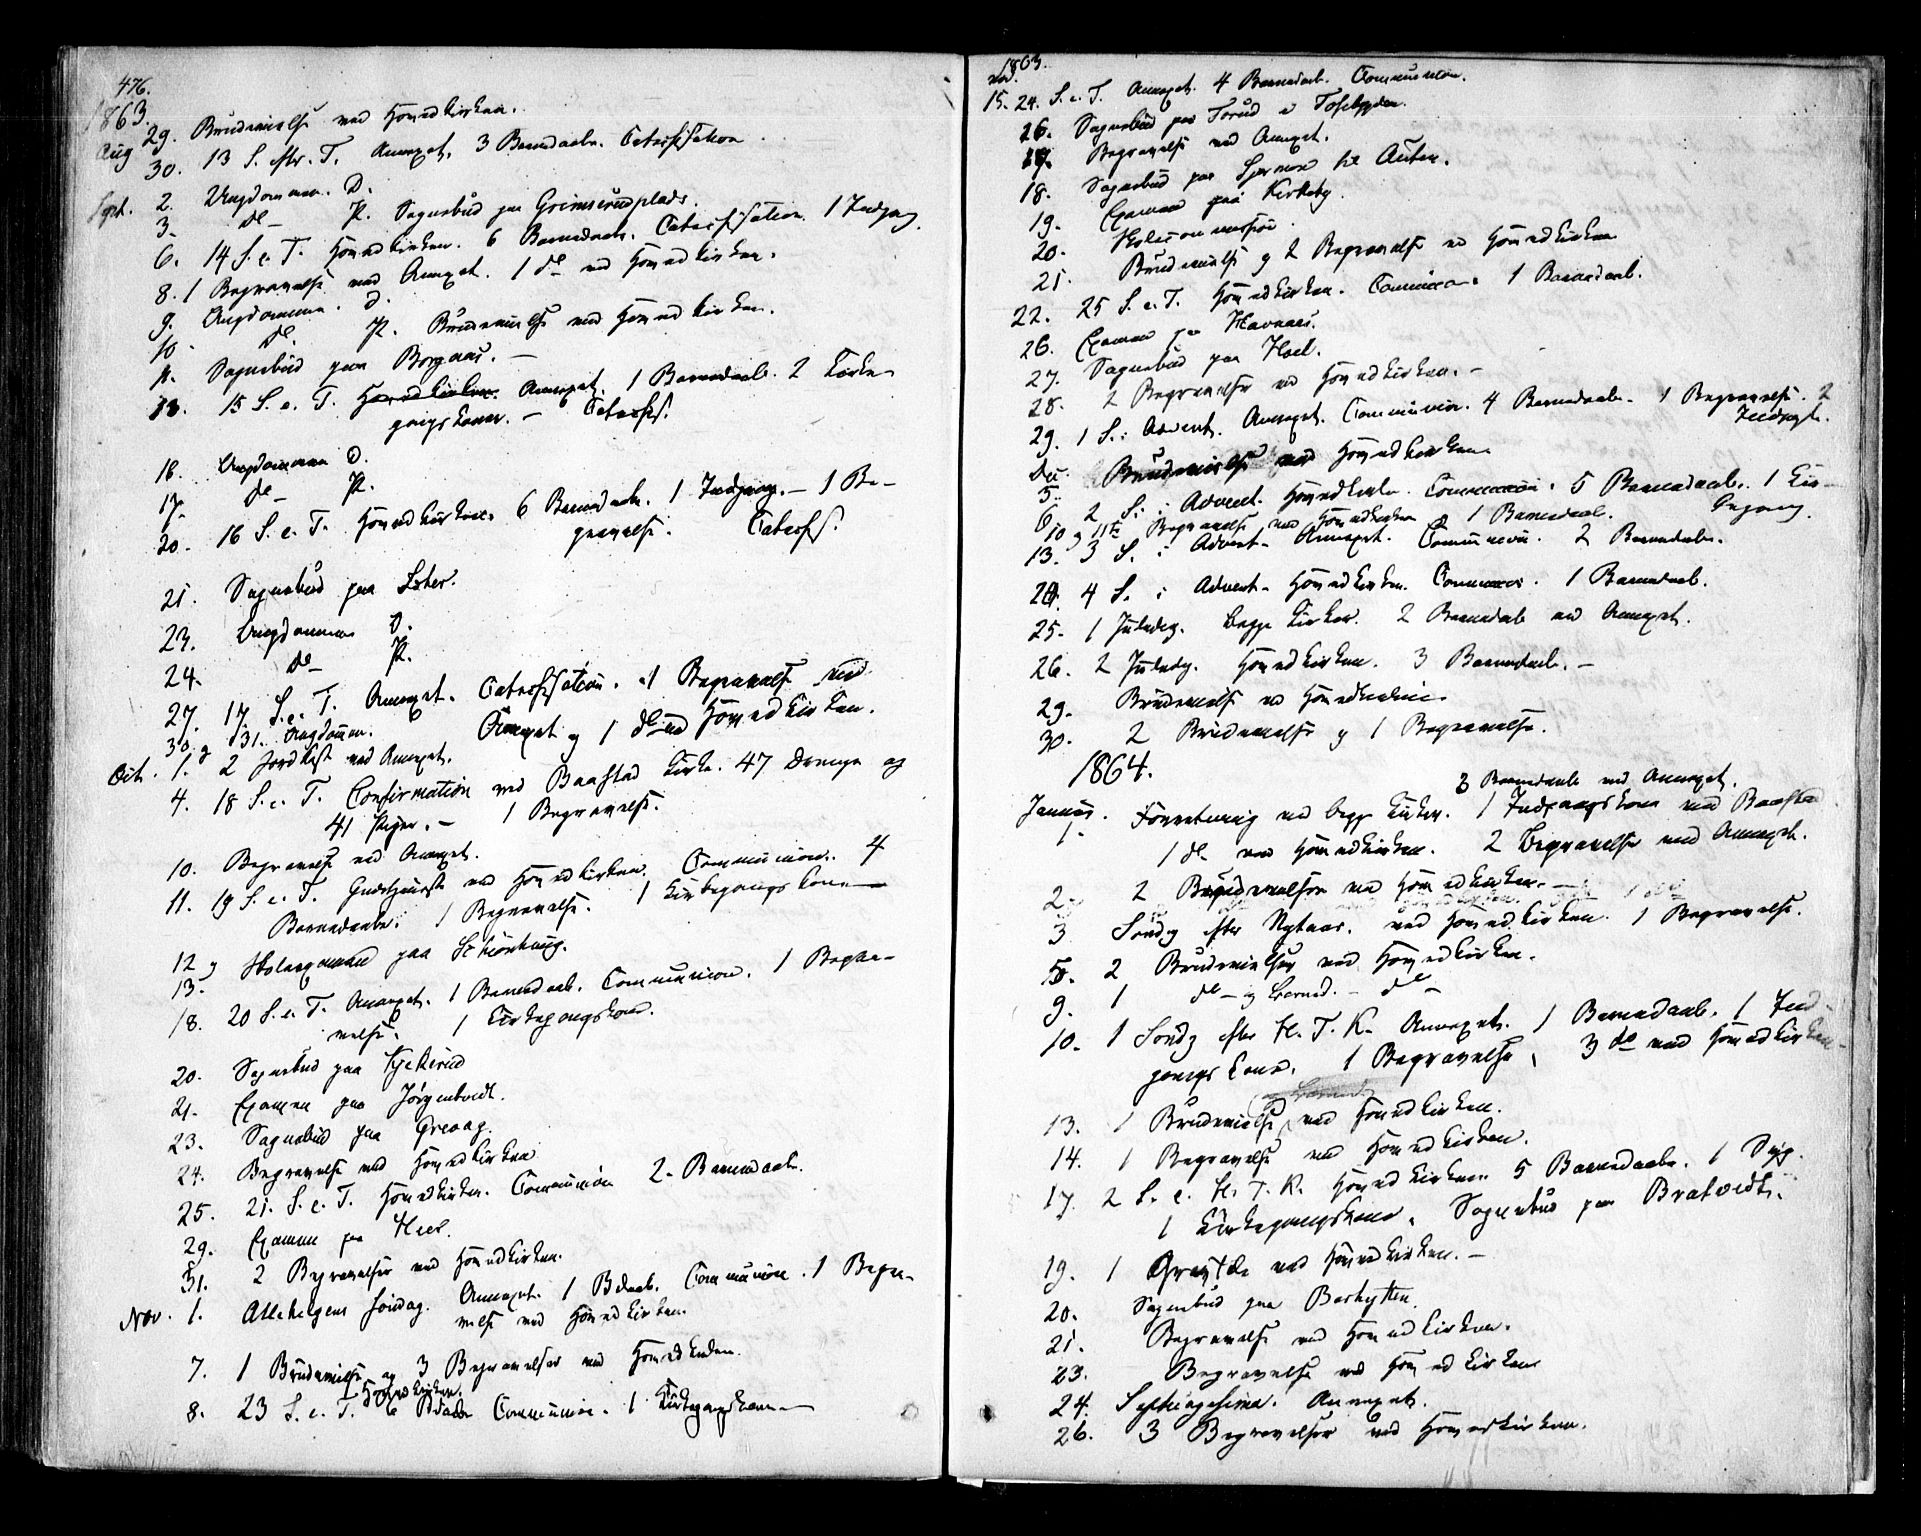 476.
1863.
Aug 29. Brudevielse ved Hovedkirken.
30. 13 S. efter T. Annexet. 3 Barnedaab. Catechisation
Sept. 2. Ungdommen. D.
3. do P. Sognebud paa Grimsrudplads.
6. 14 S. e. T. Hovedkirken. 6 Barnedaab. Catechisation. 1 Indgang.
8. 1 Begravelse ved Annexet. 1 do ved Hovedkirken.
9. Ungdommen. D.
10. do P. Brudevielse ved Hovedkirken.
11. Sognebud paa Borgaas. —
13. 15 S. e. T. Hovedkirken. Annexet. 1 Barnedaab. 2 Kirke-
gangskoner. — Catechis.
16. Ungdommen D.
17. do P.
20. 16 S. e. T. Hovedkirken. 6 Barnedaab. 1 Indgang. — 1 Be-
gravelse. Catechis.
21. Sognebud paa Lster.
23. Ungdommen D.
24. do P.
27. 17 S. e. T. Annexet. Catechisation. 1 Begravelse ved
Annexet og 1 do ved Hovedkirken.
30. og 31. Ungdommen.
Oct. 1. 2 Jordfest ved Annexet.
4. 18 S. e. T. Confirmation ved Baastad Kirke. 47 Drenge og
41 Piger. — 1 Begravelse.
10. Begravelse ved Annexet.
11. 19 S. e. T. Gudstjeneste ved Hovedkirken. Communion. 4
Barnedaab. 1 Begravelse. 1 Kirkegangskone
12 og Skoleexamen paa Schiønhaug.
13.
18. 20 S. e. T. Annexet. 1 Barnedaab. Communion. 1 Begra-
velse. 1 Kirkegangskone.
20. Sognebud paa
21. Examen paa Jørgentvedt.
23. Sognebud paa Grevag.
24. Begravelse ved Hovedkirken
25. 21. S. e. T. Hovedkirken. Communion 2 Barnedaab.
29. Examen paa Heel.
31. 2 Begravelser ved Hovedkirken.
Nov. 1. Allehelgens Søndag. Annexet. 1 Bdaab. Communion. 1 Begra-
velse ved Hovedkirken.
7. 1 Brudevielse og 3 Begravelser ved Hovedkirken.
Hovedkirken.
8. 23 S. e. T. 6 Bdaab Communion. 1 Kirkegangskone
1863.
Nov.
15. 24. S. e. T. Annexet. 4 Barnedaab. Communion.
16. Sognebud paa Torud i Tosebygden.
17. Begravelse ved Annexet.
18. Sognebud paa til Auten.
19. Examen paa Kirkeby.
20. Skolecommission.
21. Brudevielse og 2 Begravelse ved Hovedkirken
22. 25 S. e. T. Hovedkirken. Communion. 1 Barnedaab.
26. Examen paa Havnaas.
27. Sognebud paa Hoel.
28. 2 Begravelser ved Hovedkirken. —
29. 1 S. i Advent. Annexet. Communion. 4 Barnedaab. 1 Begravelse. 2
Indgangk.
Dec
5. Brudevielse ved Hovedkirken
6. 2 S. i Advent. Hovedkirken. Communion. 5 Barnedaab. 1 Kir-
kegang.
10 og 11te Begravelse ved Hovedkirken og 1 Barnedaab.
13. 3 S. i Advent. Annexet. Communion. 2 Barnedaab.
20. 4 S. i Advent. Hovedkirken. Communion. 1 Barnedaab.
25. 1 Juledag. Begge Kirker. 2 Barnedaab ved Annexet.
26. 2 Juledag. Hovedkirken. 3 Barnedaab. —
29. Brudevielse ved Hovedkirken
30. 2 Brudevielse og 1 Begravelse.
1864.
3 Barnedaab ved Annexet.
Januar. 1. Forretning ved begge Kirker. 1 Indgangskone ved Baastad
1 do ved Hovedkirken. 2 Begravelser ved Annexet.
2. 2 Brudevielser ved Hovedkirken. —
3 Søndag efter Nytaar. ved Hovedkirken. 1 Begravelse.
5. 2 Brudevielser ved Hovedkirken.
9. 1 do — og — do —
10. 1 Søndg efter H. T. K. Annexet. 1 Barnedaab. 1 Ind-
gangskone. 1 Begravelse, 3 do ved Hovedkirken.
13. 1 Brudevielse ved Hovedkirken.
14. 1 Begravelse ved Hovedkirken.
17. 2 S. e. H. T. K. Hovedkirken 5 Barnedaab. 1
1 Kirkegangskone. Sognebud paa Bratvedt.
19. 1 ved Hovedkirken. —
20. Sognebud paa Berhytten.
21. Begravelse ved Hovedkirken.
23. Begravelse ved Hovedkirken
24. Septuagesima. Annexet.
26. 3 Begravelser ved Hovedkirken.